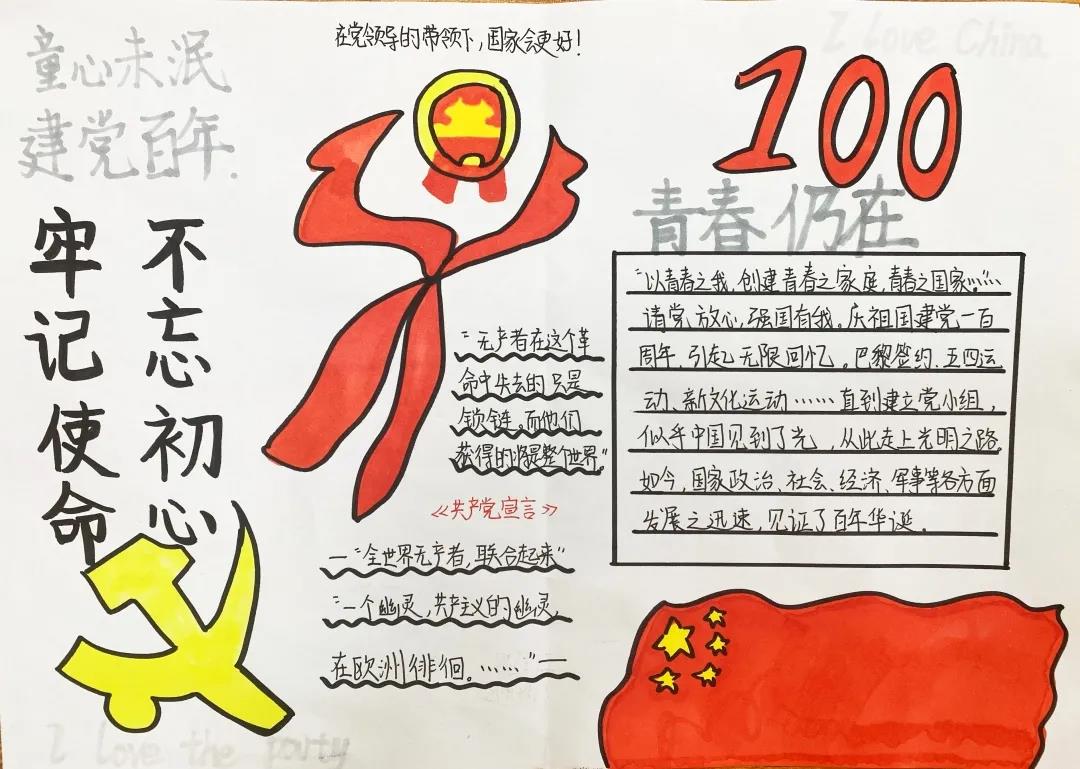 童心未泯
建党百年.
不忘初心
牢记使命
I love the party
在党领导的带领下，国家会更好！
“无产者在这个革
命中失去的只是
锁链。而他们
获得的将是整个世界”
《共产党宣言》
—“全世界无产者，联合起来”
“一个幽灵，共产主义的幽灵，
在欧洲徘徊。……”—
I Love China
100
青春仍在
“以青春之我，创建青春之家庭，青春之国家。”……
请党放心，强国有我。庆祖国建党一百
周年，引起无限回忆。巴黎签约、五四运
动、新文化运动……直到建立党小组，
似乎中国见到了光，从此走上光明之路。
如今，国家政治、社会、经济、军事等各方面
发展之迅速，见证了百年华诞。